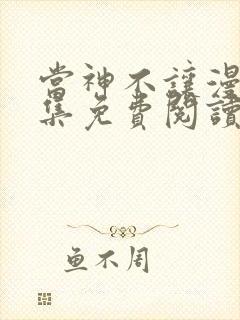 當神不讓漫
集免費閱讀
鱼不周